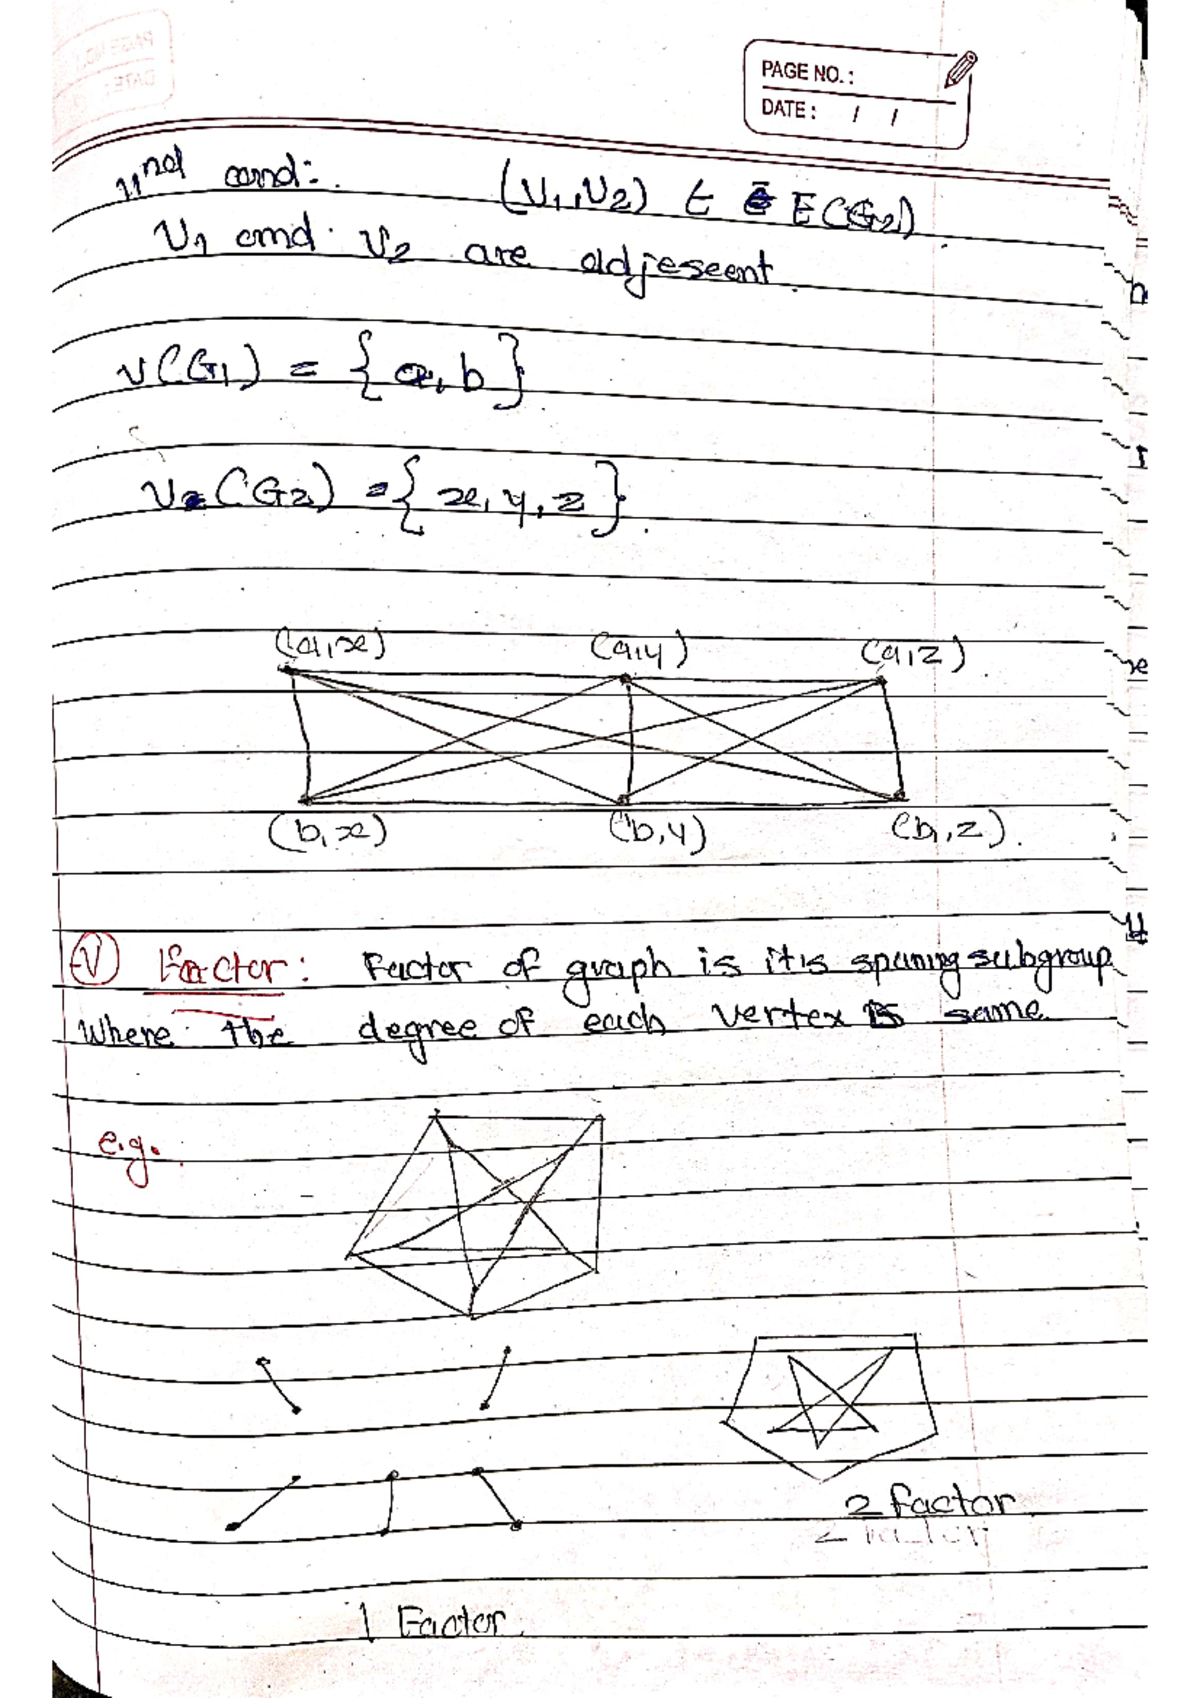 PAGE NO.:
DATE: / /
IInd cond:. (U1,U2) ∈ E(G2).
U1 and v2 are adjeseent.
V(G1) = {a, b}.
V2(G2) = {x, y, z}.
(a,x) (a,y) (a,z)
(b,x) (b,y) (b,z).
V Factor: Factor of graph is it's spaning subgroup
Where the degree of each vertex is same.
e.g.
2 factor
1 Factor.